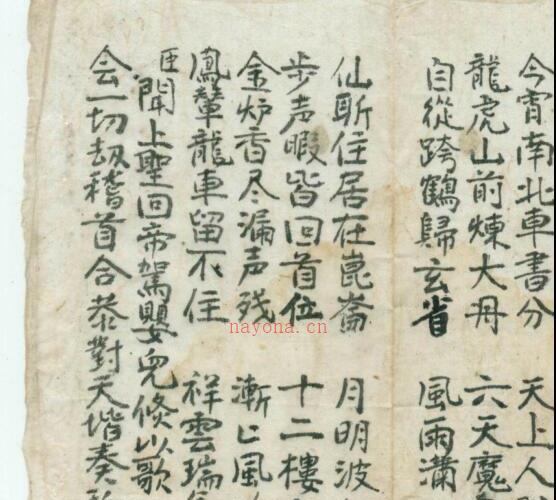 今宵南北車書分 天上人
龍虎山前煉大丹 六天魔
自從跨鶴歸玄省 風雨瀟
仙住居在崑崙 月明波
步声暇皆回首位 十二樓
金炉香尽漏声残 漸匕風
鳳輦龍車留不住 祥雲瑞
臣聞上聖回帝駕嬰児倏以歌
会一切劫稽首合恭對天堦奏
nayona.cn